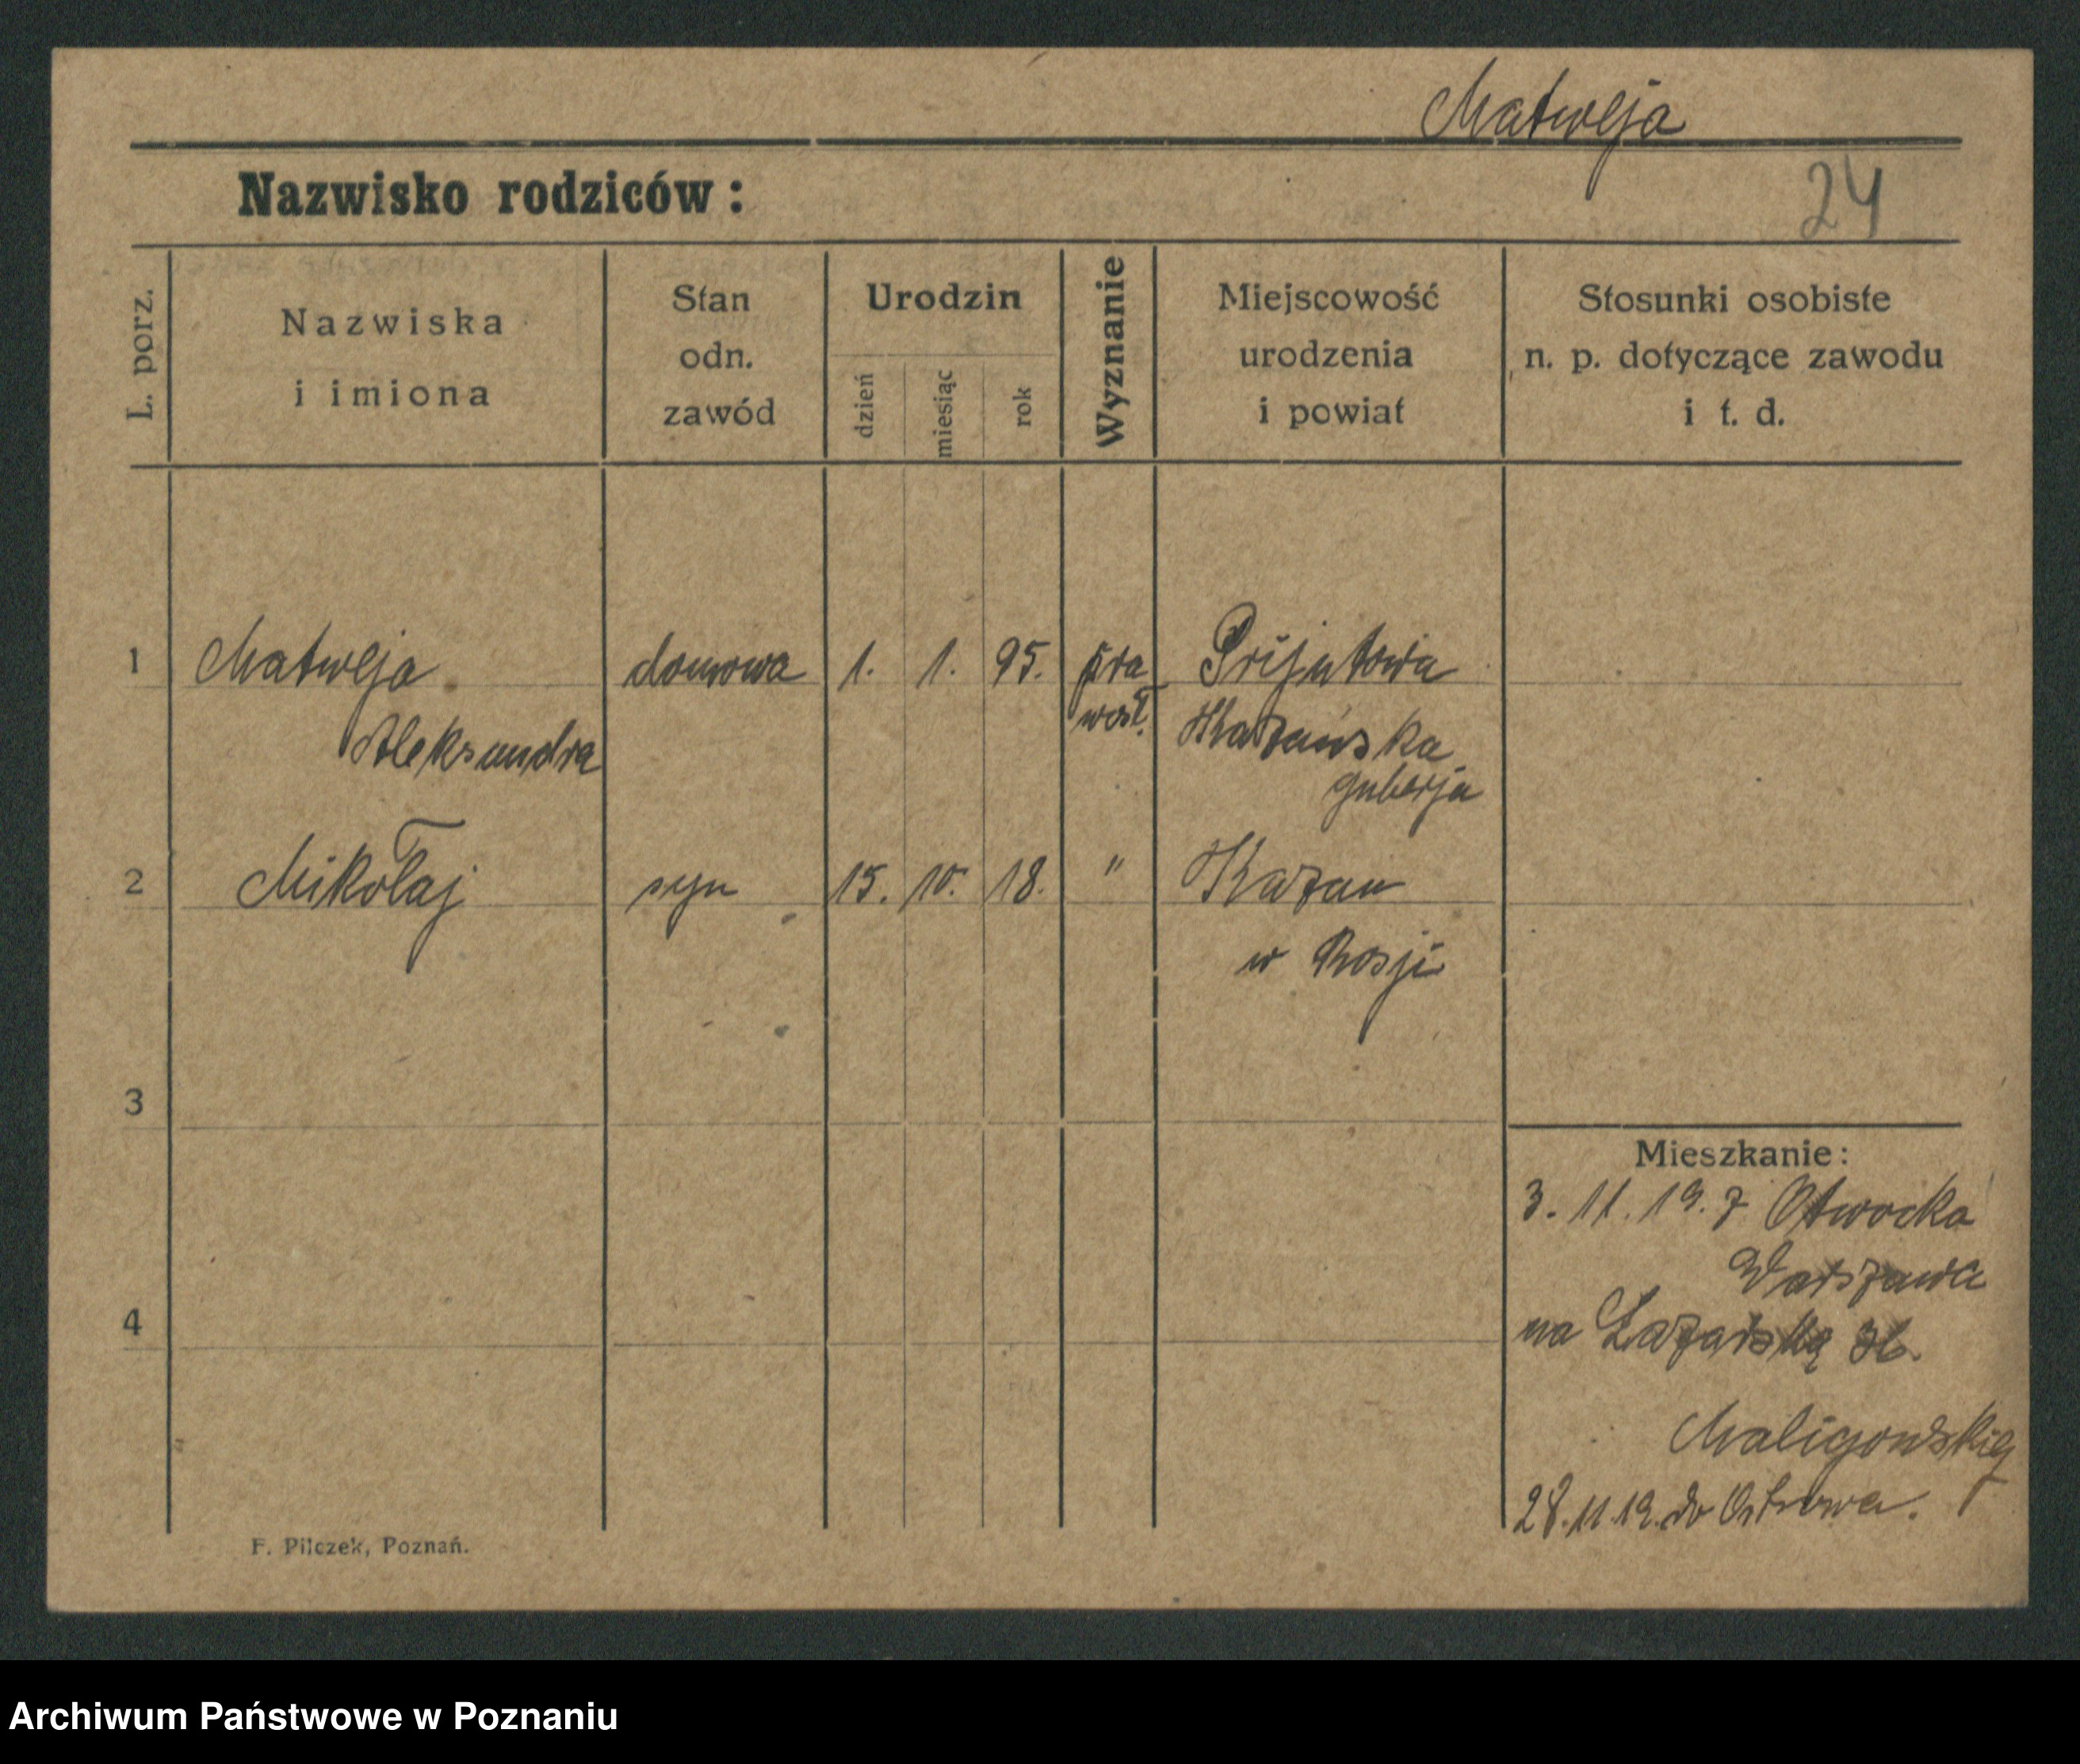 Matweja
Nazwisko rodziców:
24
L. porz.
Nazwiska
i imiona
Stan
odn.
zawód
Urodzin
dzień
miesiąc
rok
Wyznanie
Miejscowość
urodzenia
i powiat
Stosunki osobiste
n. p. dotyczące zawodu
i t. d.
1 Matweja domowa 1. 1. 95. pra Prijutowia
wosł. Kazańska
Aleksandra
guberja
2 Mikołaj syn 15. 10. 18. " Kazan
w Rosji
3
Mieszkanie:
3. 11. 19. z Otwocka
Warszawa
4
na Łazarską 3b.
Maligowskiej
28.11.19. do Ostrowa.
F. Pilczek, Poznań.
Archiwum Państwowe w Poznaniu